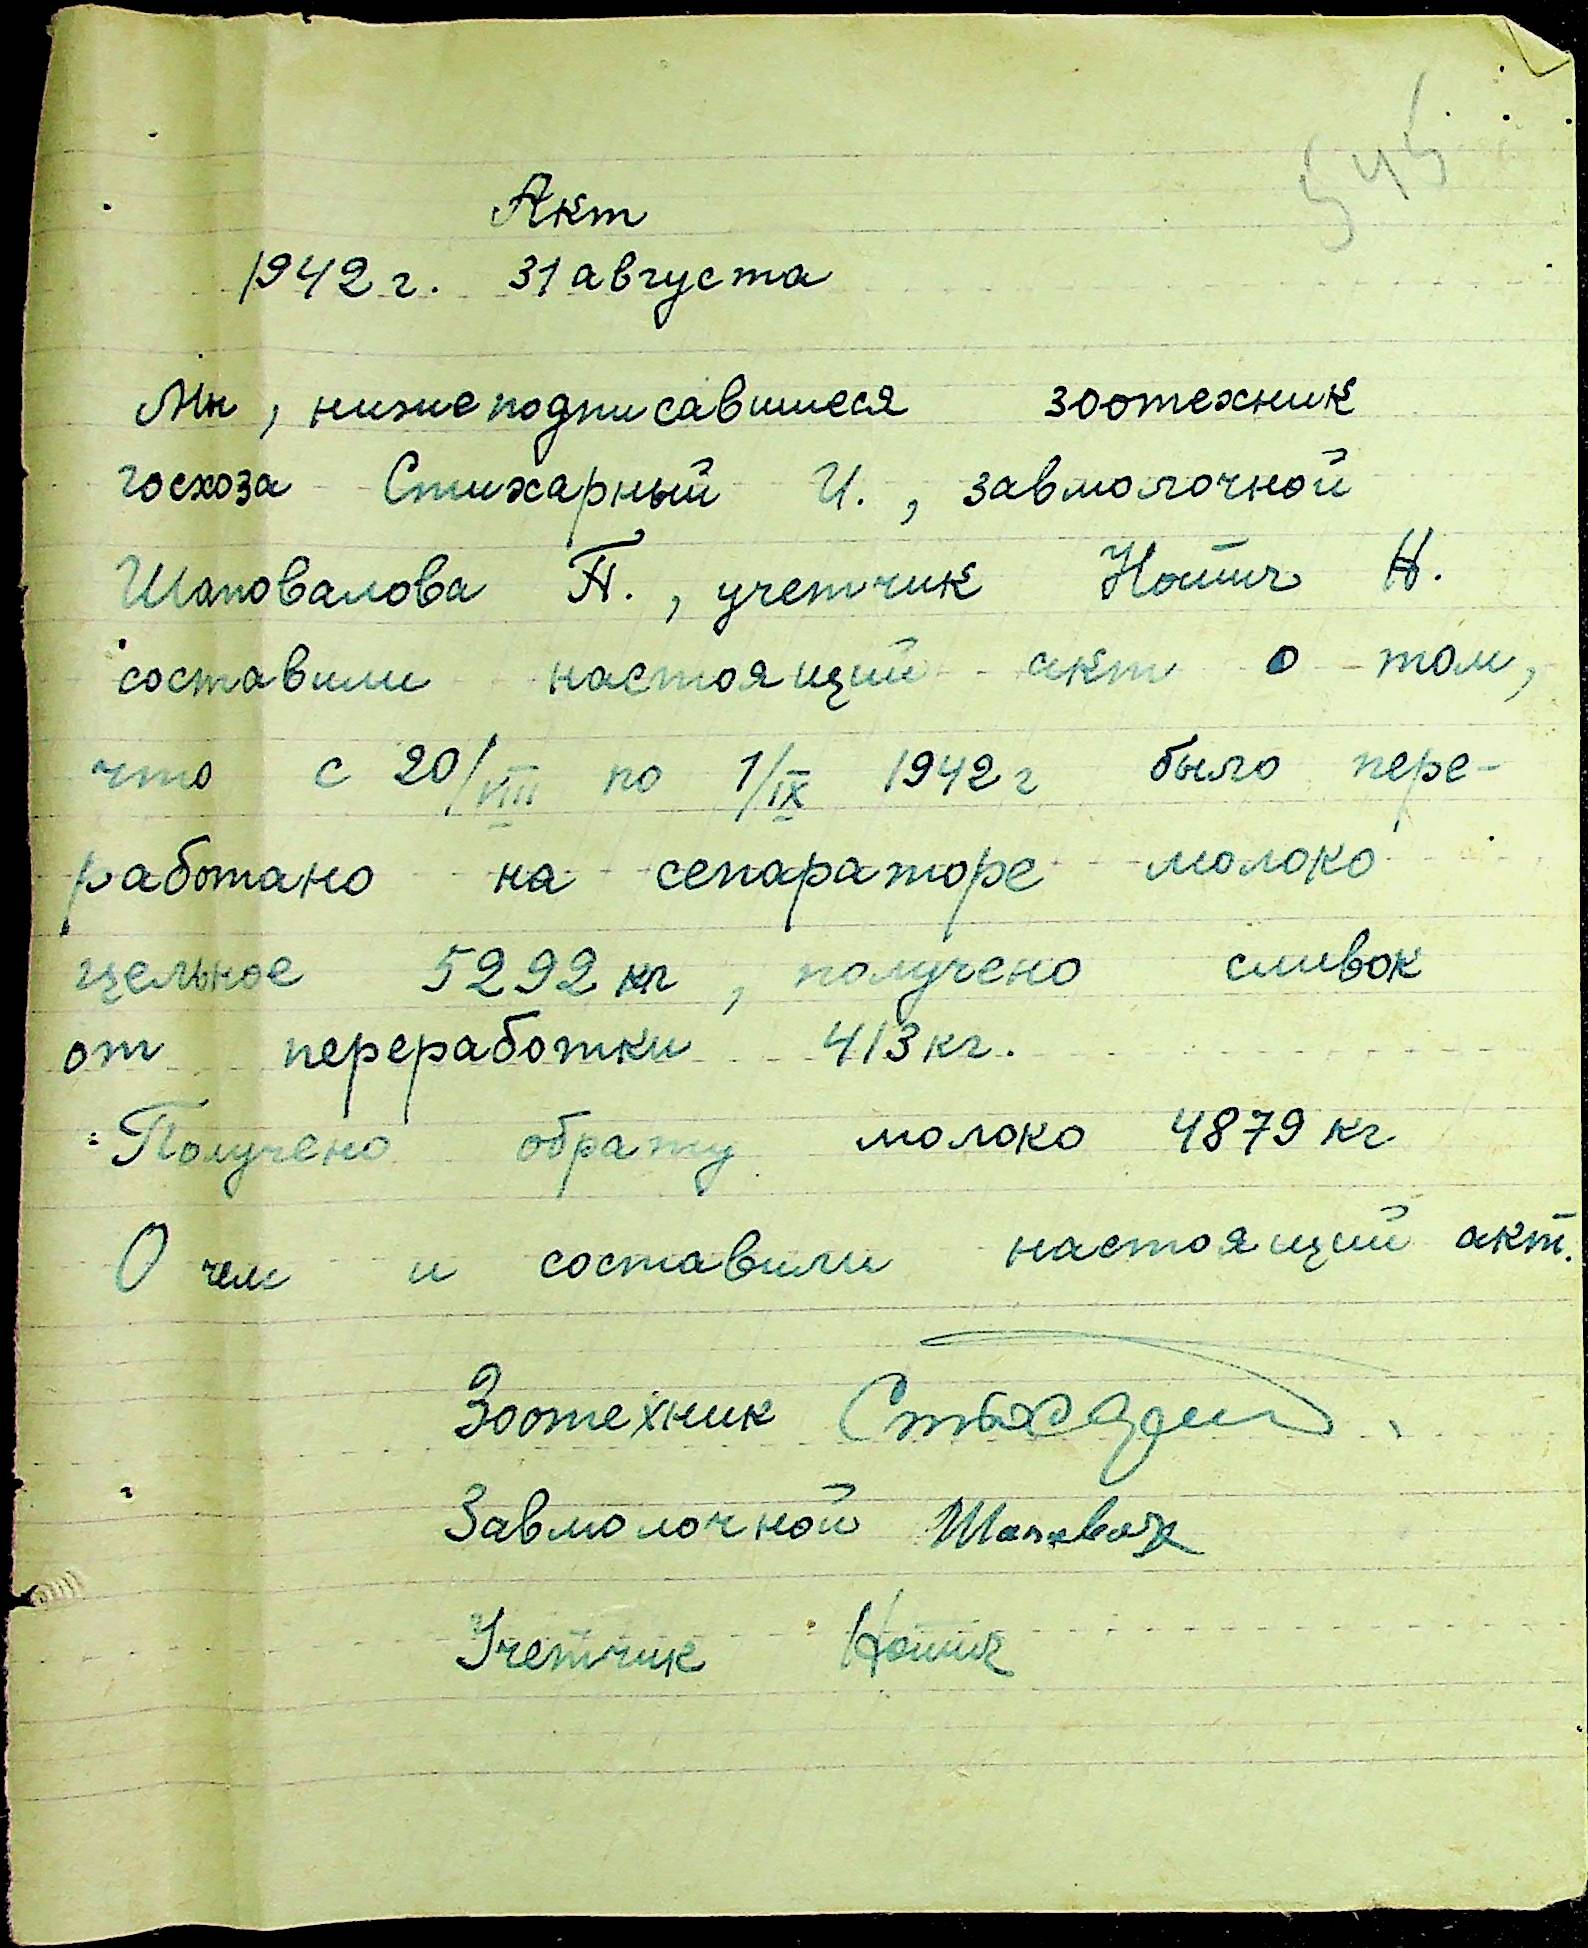 545
Акт
1942 г. 31 августа
Мы, нижеподписавшиеся зоотехник
госхоза Стихарный И., завмолочной
Шаповалова П., учетчик Нотич Н.
составили настоящий акт о том,
что с 20/VIII по 1/IX 1942 г было пере-
работано на сепараторе молоко
цельное 5292 кг, получено сливок
от переработки 413 кг.
Получено обрату молоко 4879 кг
О чем и составили настоящий акт.
Зоотехник
Завмолочной Шаповал
Учетчик Нотич